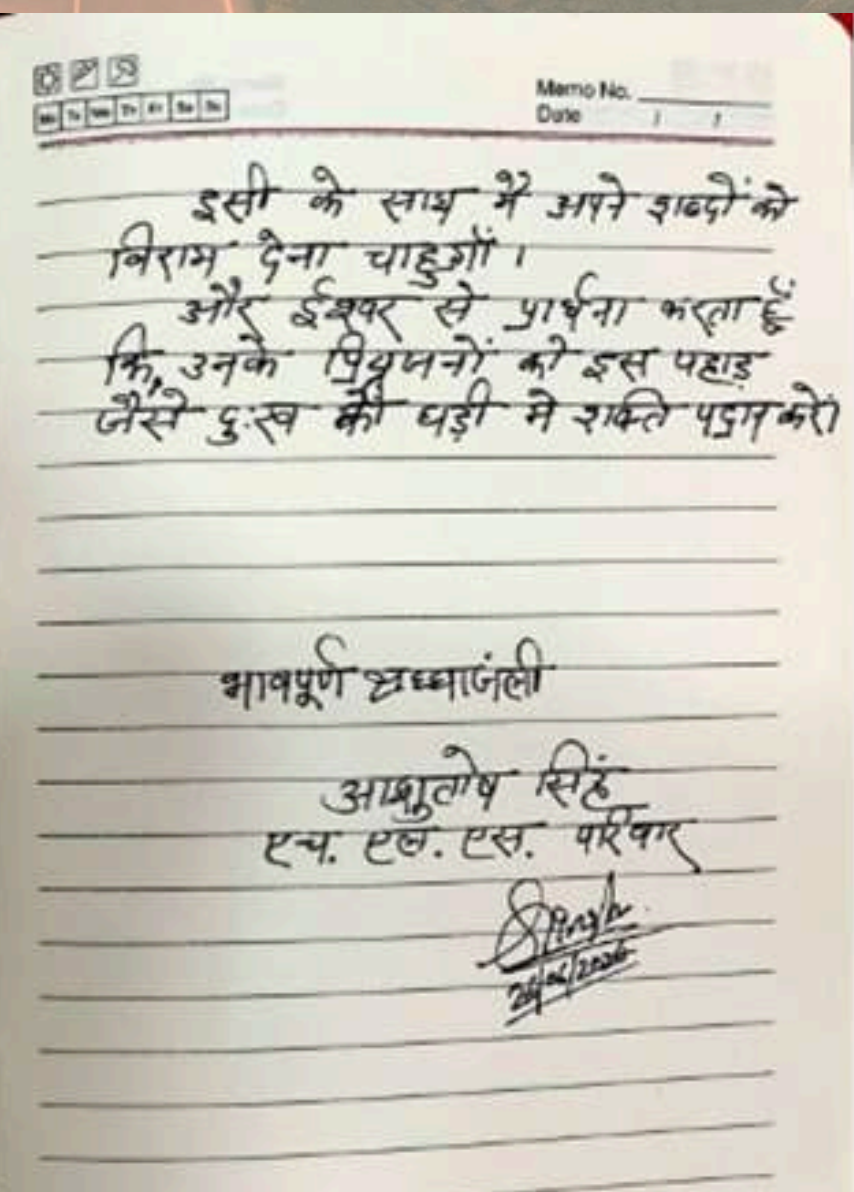 Mo Tu We Th Fr Sa Su
Memo No.
Date / /
इसी के साथ मै अपने शब्दों को
विराम देना चाहुगाँ ।
और ईश्वर से प्रार्थना करता हूँ
कि, उनके प्रियजनों को इस पहाड़
जैसे दुःख की घड़ी मे शक्ति पद्रान करे।
भावपूर्ण श्रध्धाजंली
आशुतोष सिहं
एच. एल. एस. परिवार
Singh